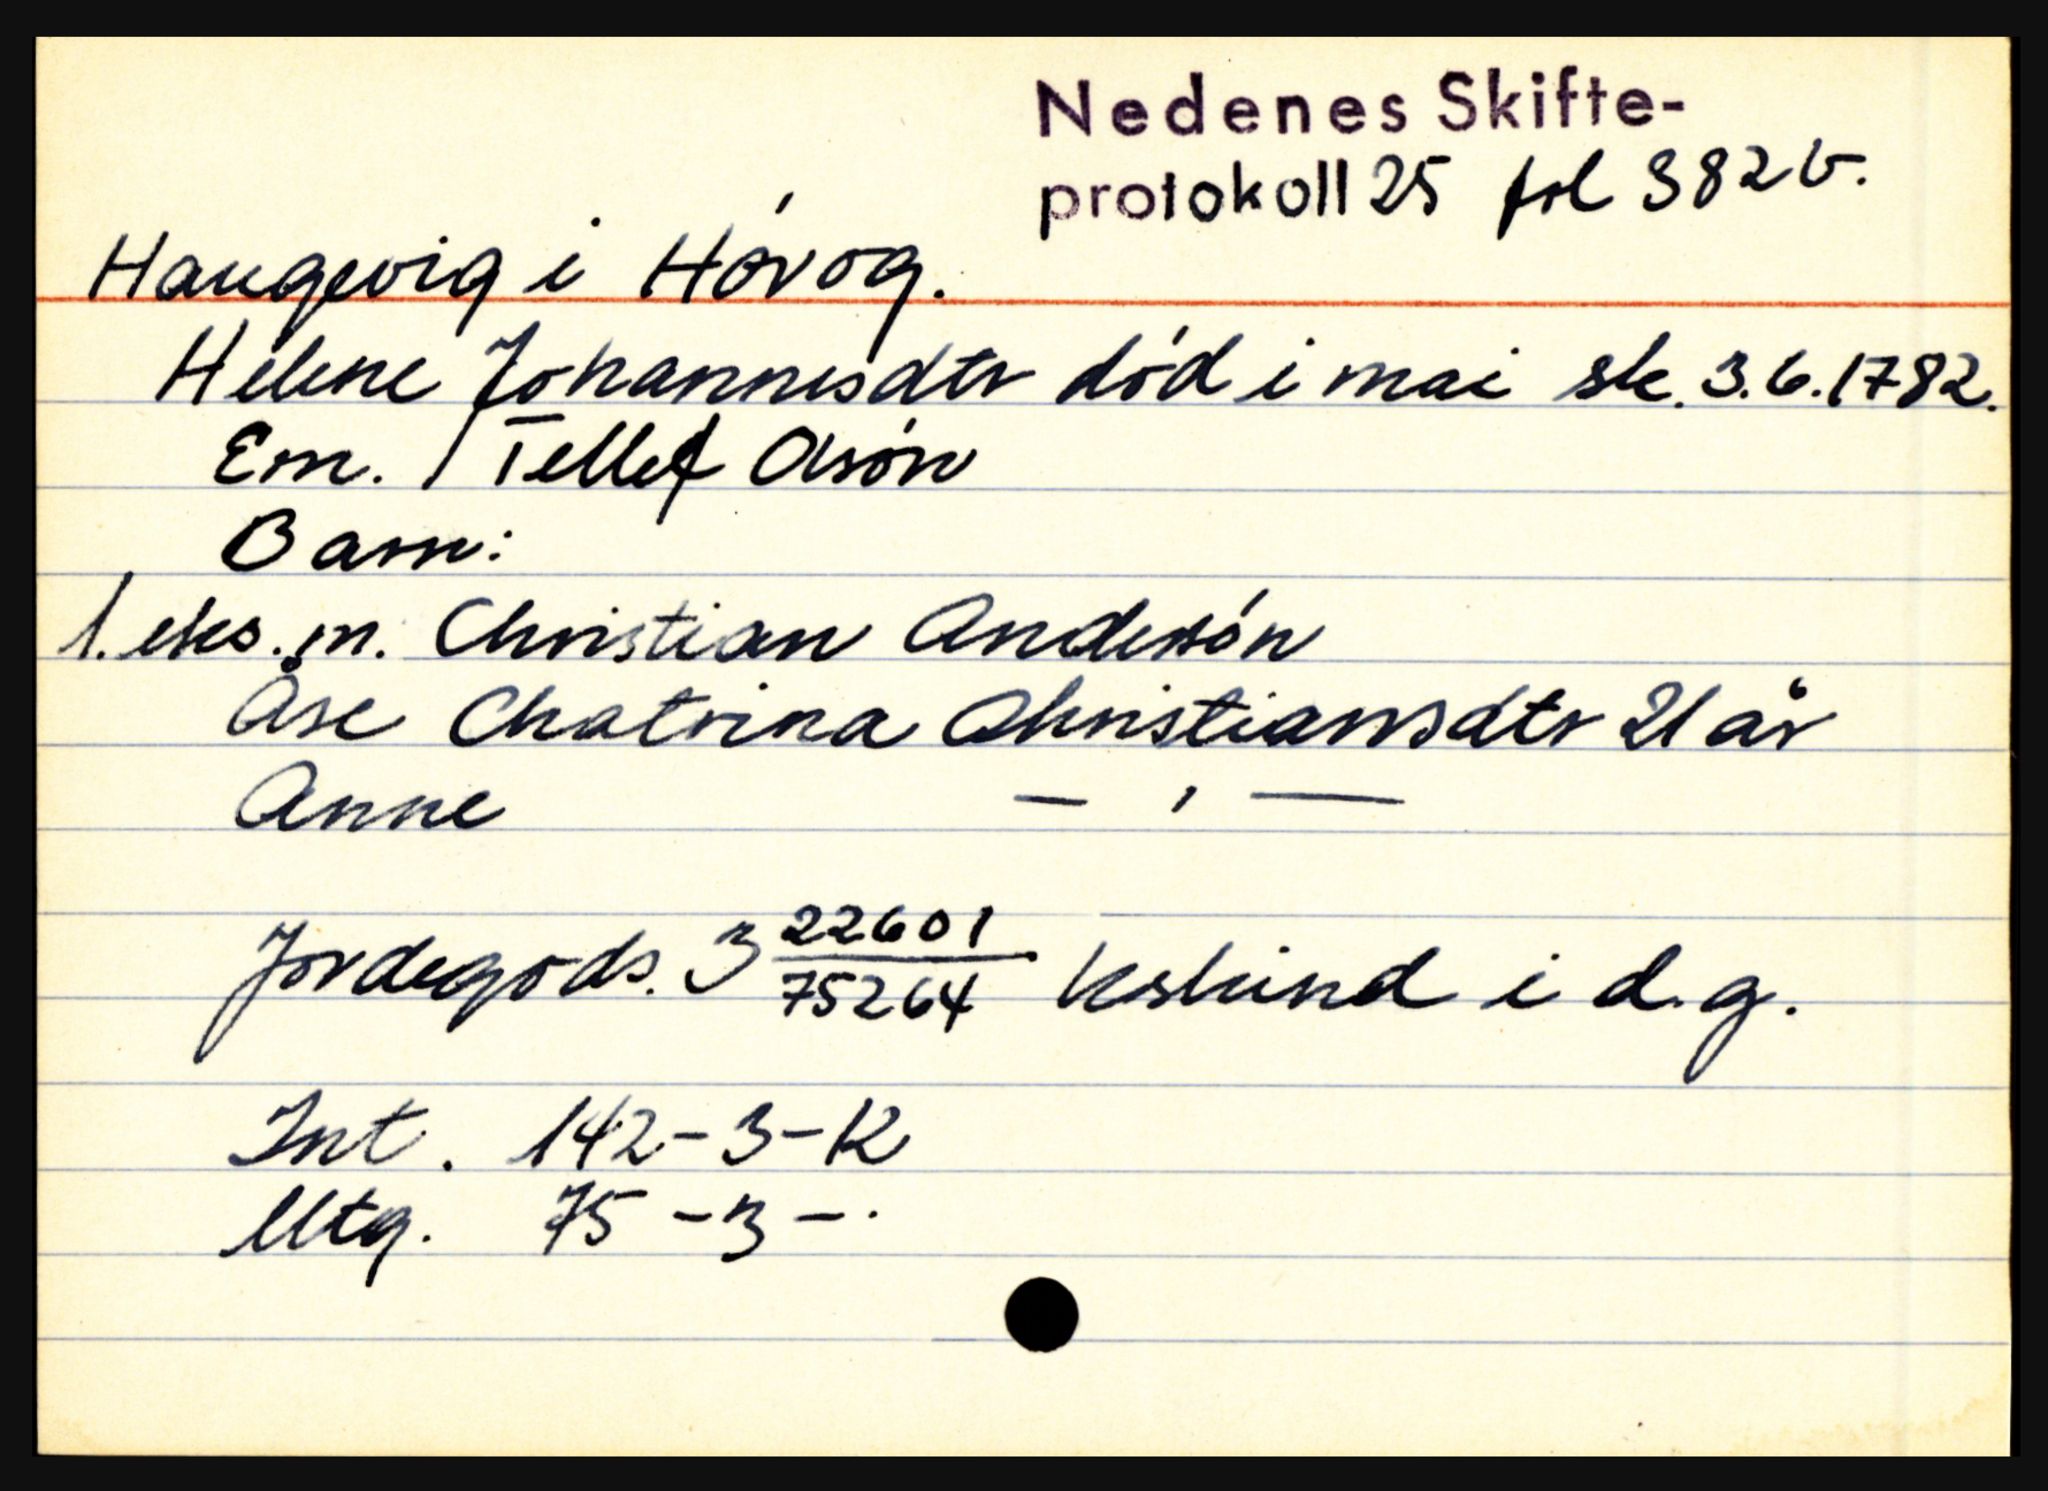 Nedenes Skifte-
protokoll 25 fol 382 b.
Haugevig i Høvog.
Helene Johannesdtr död i mai sk. 3.6.1782.
Em. Tellef Olsön
Barn:
1. eks. m. Christian Andersön
Åse Chatrina Christiansdtr 21 år
Anne — , —
Jordegods. 3 22601/75264 kskind i d.g.
Int. 142-3-12
Utg. 75 -3 - .